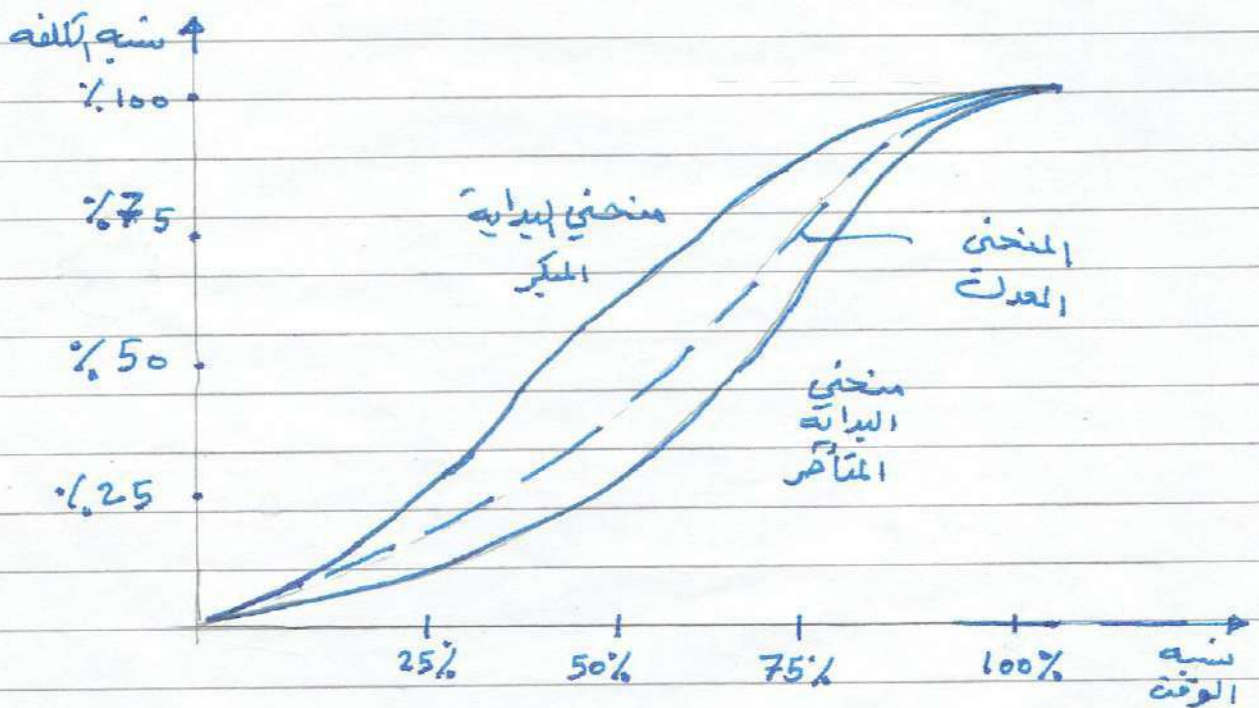 نسبه الكلفه
%100
%75
%50
%25
منحني البداية
المبكر
المنحنى
المعدل
منحني
البداية
المتأخر
25%
50%
75%
100%
نسبه
الوقت